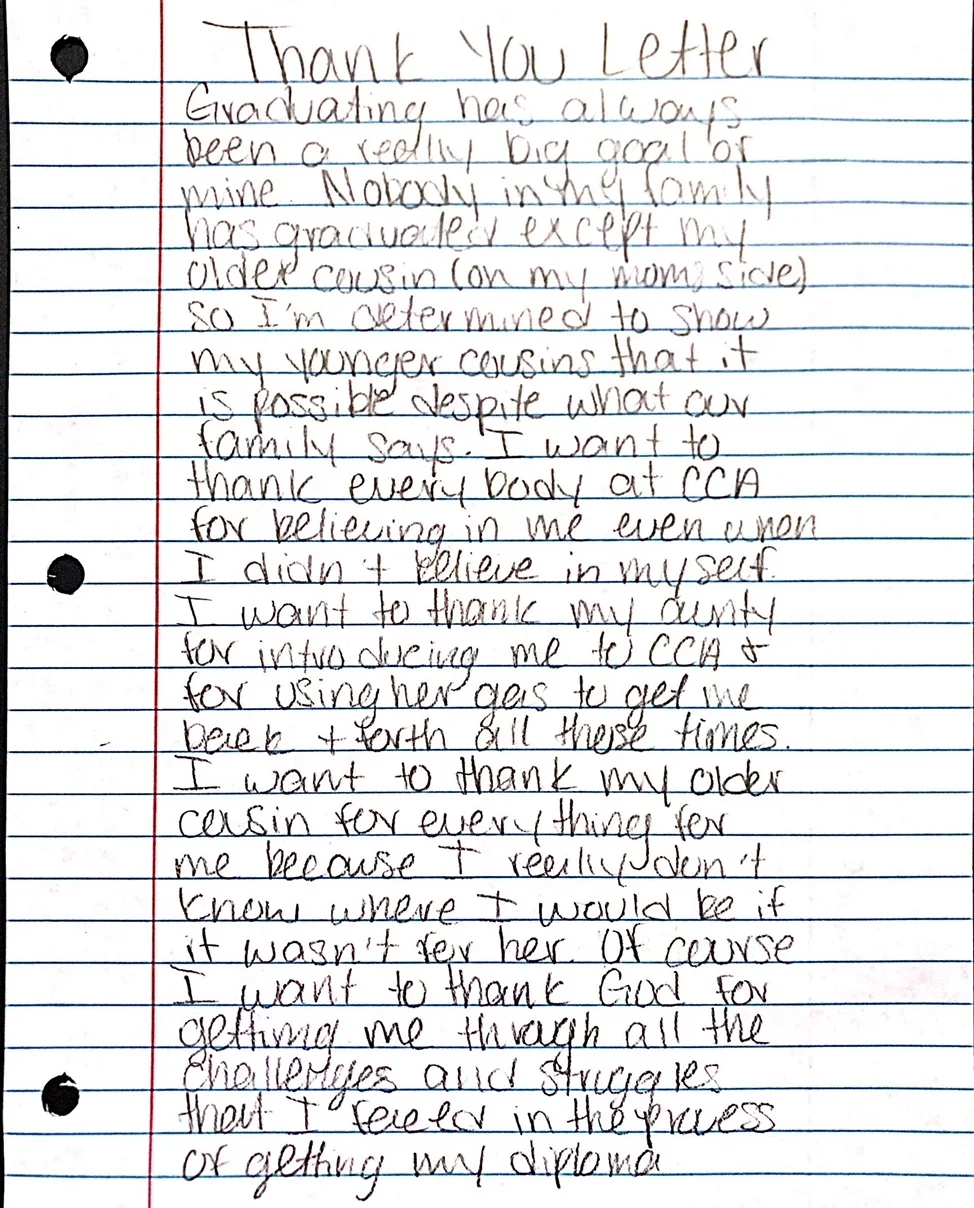 Thank You Letter
Graduating has always
been a really big goal of
mine. Nobody in my family
has graduated except my
older cousin (on my moms side)
so I'm determined to show
my younger cousins that it
is possible despite what our
family says. I want to
thank every body at CCA
for believing in me even when
I didn't believe in myself.
I want to thank my aunty
for introducing me to CCA &
for using her gas to get me
back + forth all these times.
I want to thank my older
cousin for everything for
me because I really don't
know where I would be if
it wasn't for her. Of course
I want to thank God for
getting me through all the
challenges and struggles
that I faced in the process
of getting my diploma